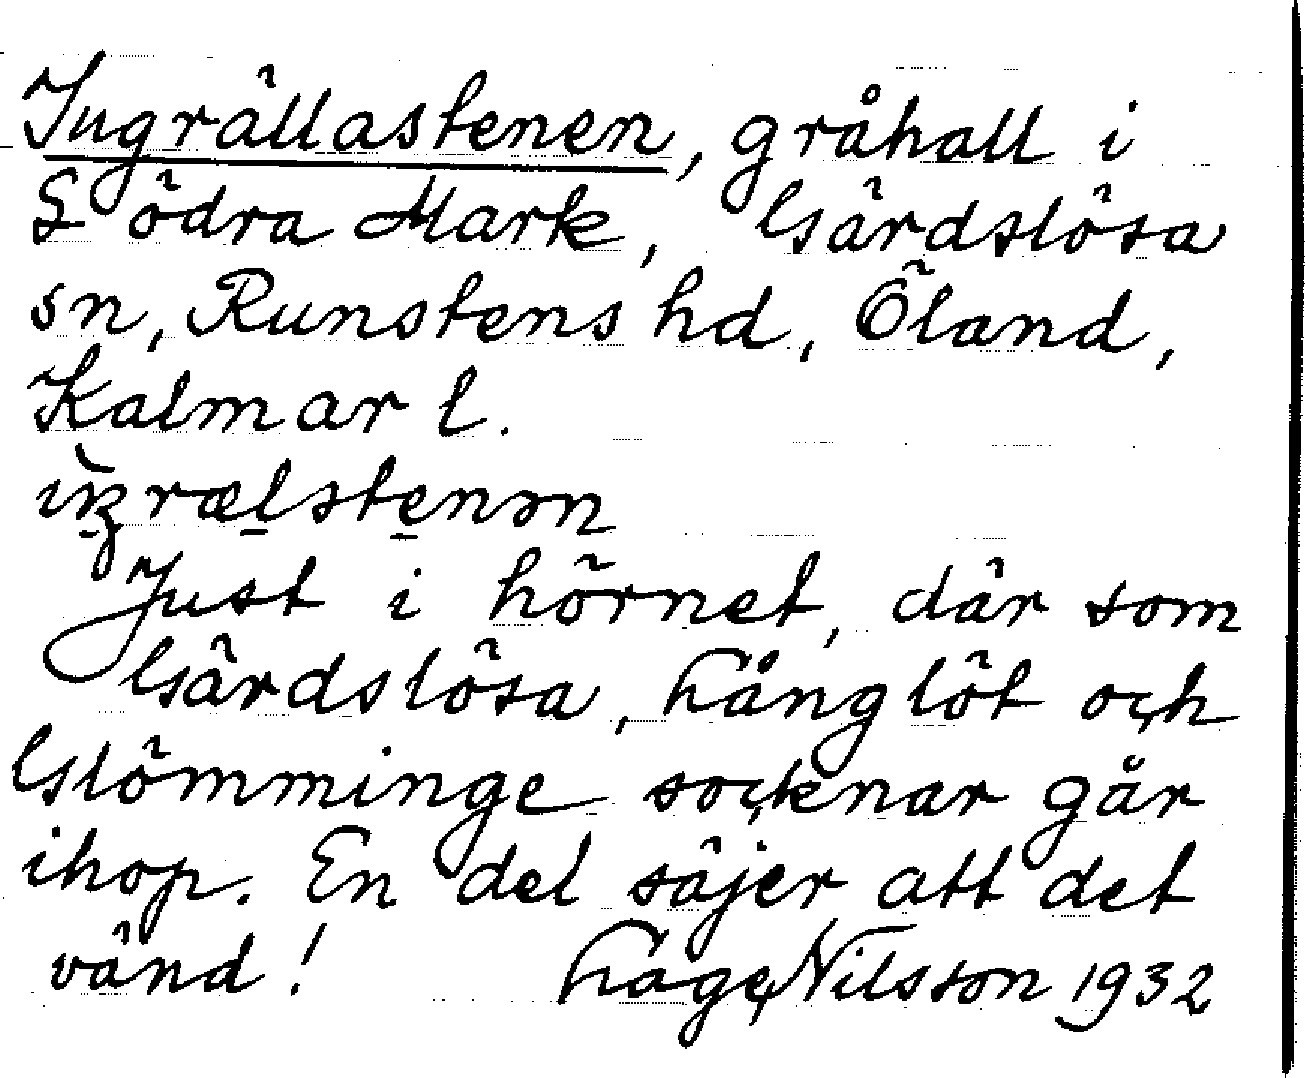 Ingrällastenen, gråhall i
Södra Mark, Gärdslösa
sn, Runstens hd, Öland,
Kalmar l.
Just i hörnet, där som
Gärdslösa, Långlöt och
Glömminge socknar går
ihop. En del säjer att det
vänd! Lage Nilsson 1932